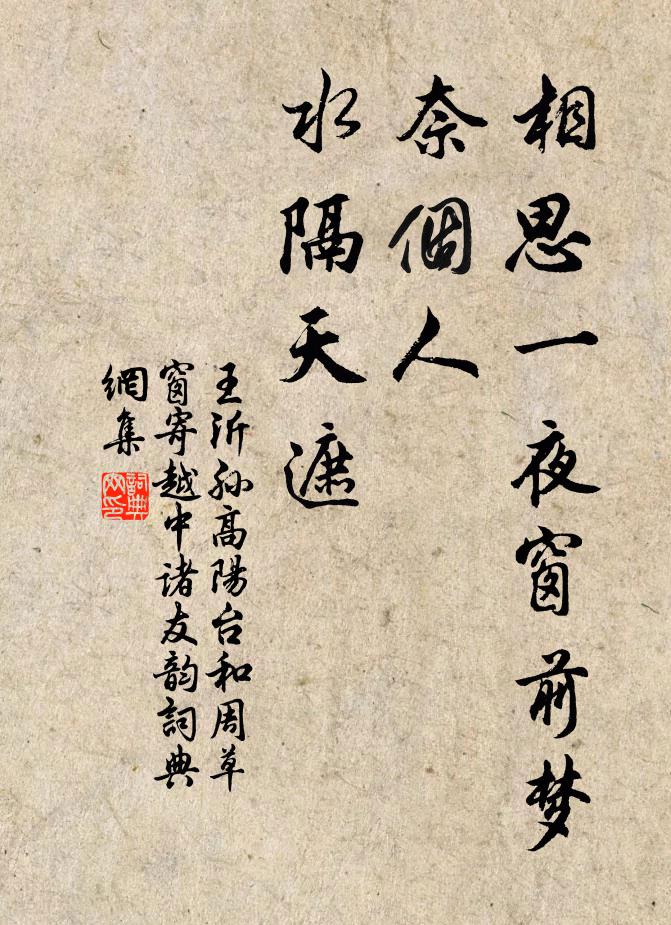 相思一夜窗前梦
奈個人
水隔天遮
王沂孙高陽台和周草
窗寄越中诸友韵詞典
網集
詞典
网印